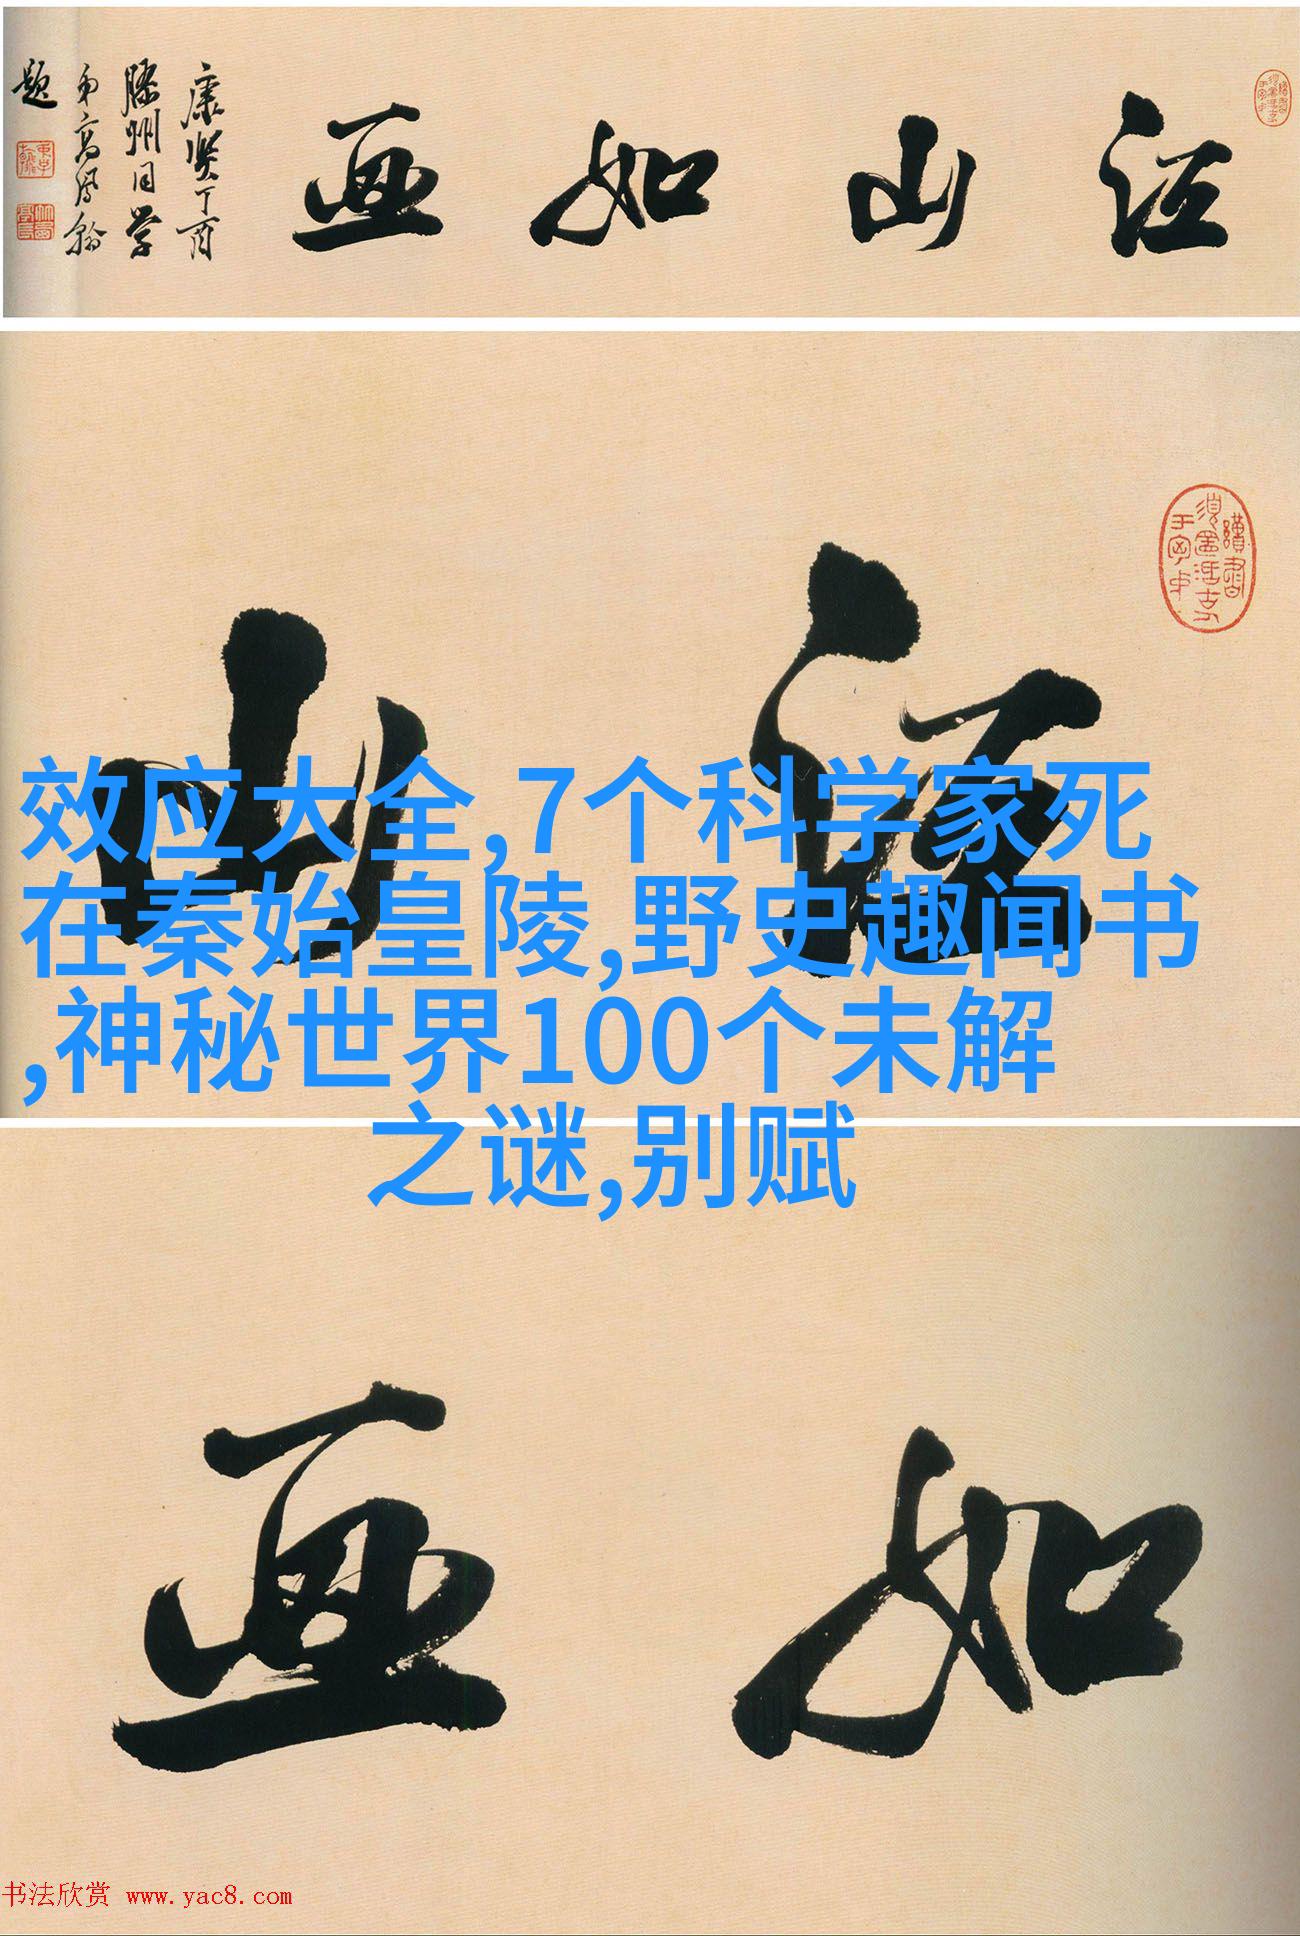 江山如画
康熙丁酉
滕州同学
弟高凤翰
题
山江
效应大全,7个科学家死
在秦始皇陵,野史趣闻书
,神秘世界100个未解
之谜,别赋
画如
书法欣赏 www.yac8.com